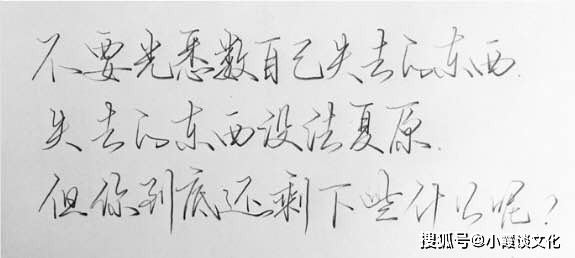 不要光悉数自己失去的东西.
失去的东西设法复原.
但你到底还剩下些什么呢?
搜狐号@小霞谈文化